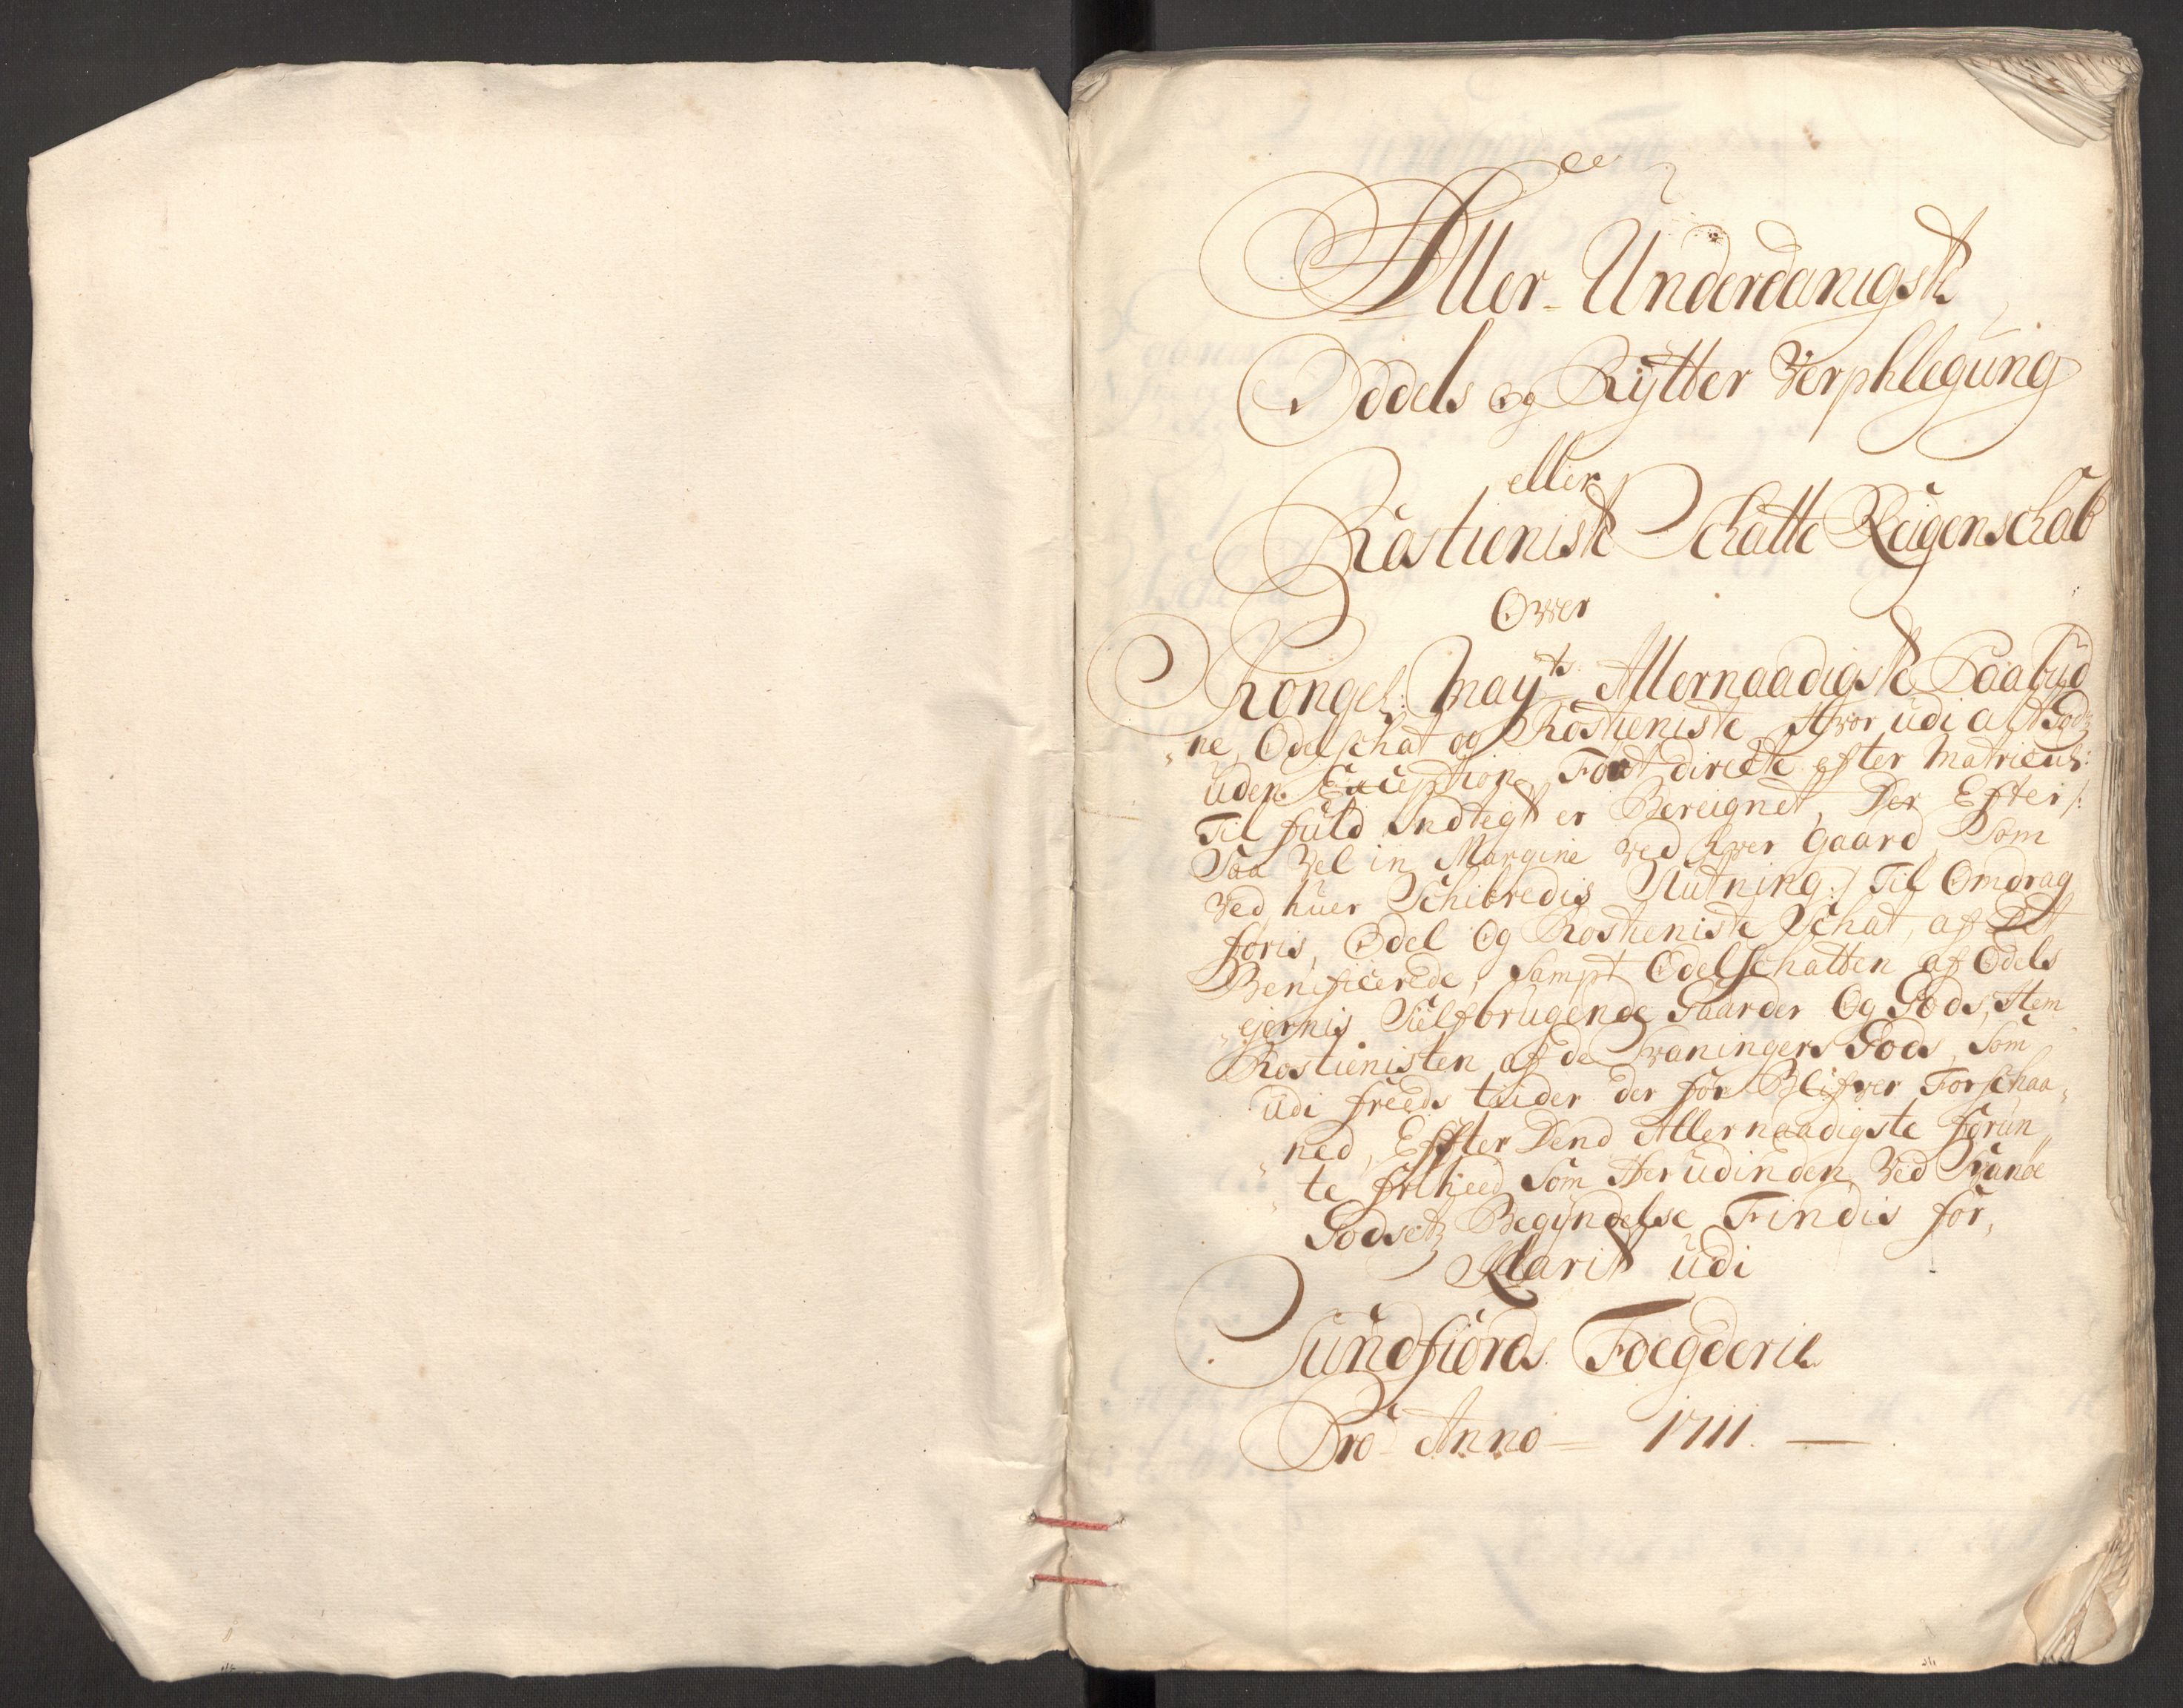 Aller-Underdanigst
Oddels og Rytter Verphlegung
eller
Rostienist Schatte Reigenschab
Over
Kongel: May:ts Allernaadigste Paabud
"ne Odelschat og Rostieniste Hvor udi alt Godz
uden Exception Fört directe efter Matricul:
Til fuld Indtegt er Bereignet, Der Efter /:
Saa Vel in Margine ved hver Gaard Som
Ved huer Schibredis Slutning :/ Til Omdrag
föris, Odel Og Rostieniste Schat, af Det
Benificerede, Sampt Odelschatten af Odels
"ejernis Sielfbrugende Gaarder Og Gods, Item
Rostienisten af de Svaningers Gods, Som
udi freeds tiider der for Blifver Forschaa"
"ned, Effter Dend Allernaadigste forun"
"te friheed Som Her udinden Ved Svanöe
Godsetz Begyndelse Findis for,
Klarit udi
Sundfiords Foegderie
Pro Anno 1711.